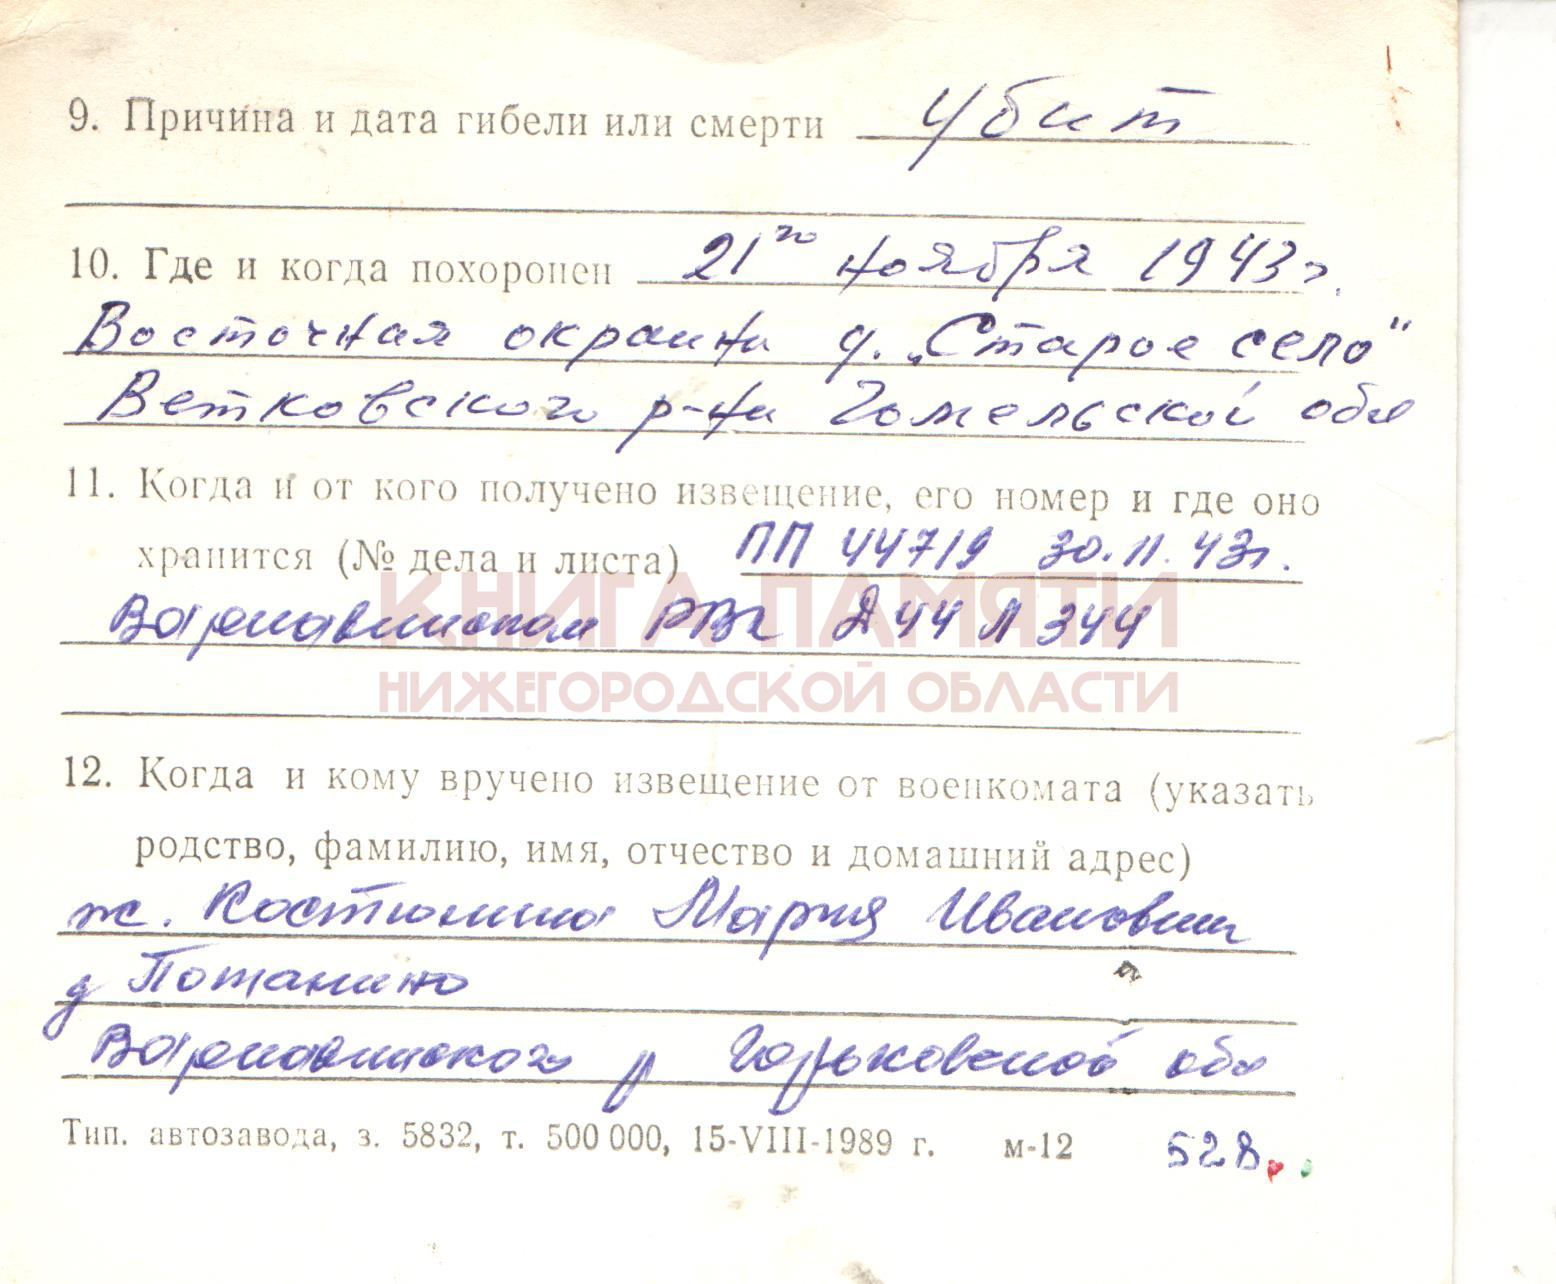 9. Причина и дата гибели или смерти Убит
10. Где и когда похоронен 21го ноября 1943г.
Восточная окраина д. „Старое село"
Ветковского р-на Гомельской обл
11. Когда и от кого получено извещение, его номер и где оно
хранится (№ дела и листа) ПП 44719 30.11.43г.
Варнавинском РВК Д 44 Л 344
КНИГА ПАМЯТИ
НИЖЕГОРОДСКОЙ ОБЛАСТИ
12. Когда и кому вручено извещение от военкомата (указать
родство, фамилию, имя, отчество и домашний адрес)
ж. Костюнина Мария Ивановна
д Потанино
Варнавинского р Горьковской обл
Тип. автозавода, з. 5832, т. 500 000, 15-VIII-1989 г. м-12 528.